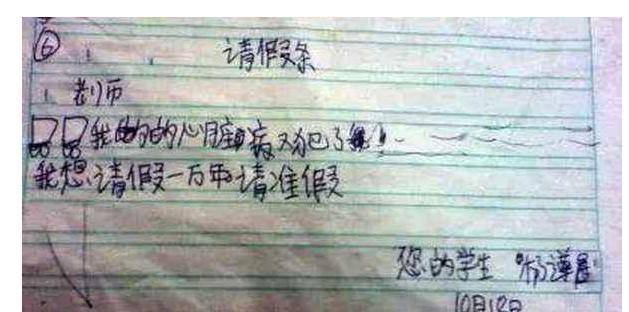 ⑥ 请假条
老师
我的的心脏病又犯了
我想请假一万年请准假
您的学生 杨
10月12日